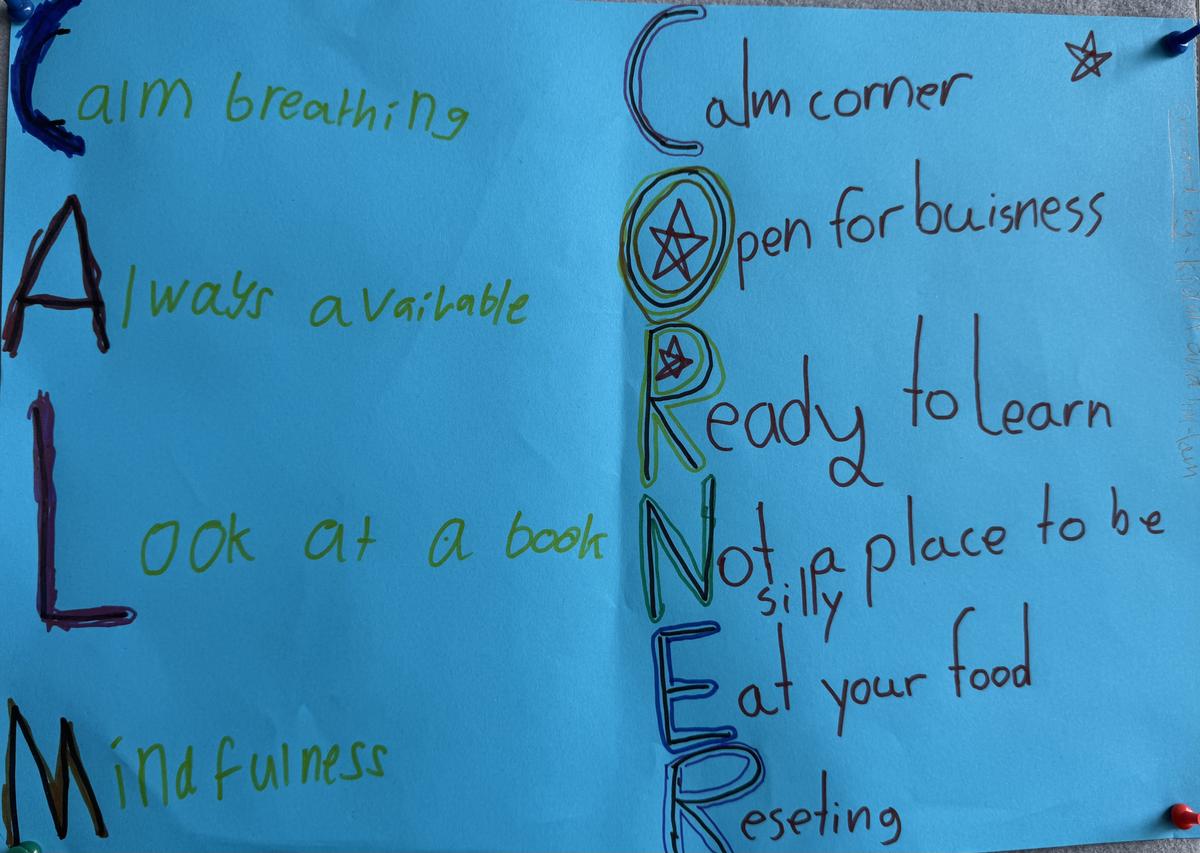 Calm breathing
Always available
Look at a book
Mindfulness
Calm corner
Open for buisness
Ready to Learn
Not a place to be
silly
Eat your food
Reseting